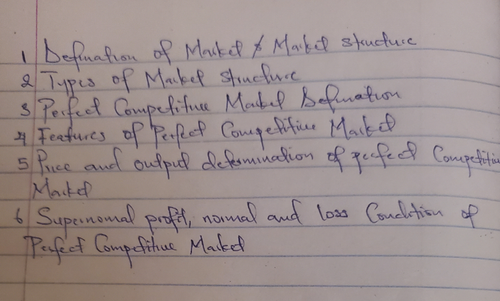 1 Defination of Market & Market structure
2 Types of Market structure
3 Perfect Competitive Market Defination
4 Features of Perfect Competitive Market
5 Price and output determination of perfect Competitive
Market
6 Supernomal profit, normal and loss Condition of
Perfect Competitive Market